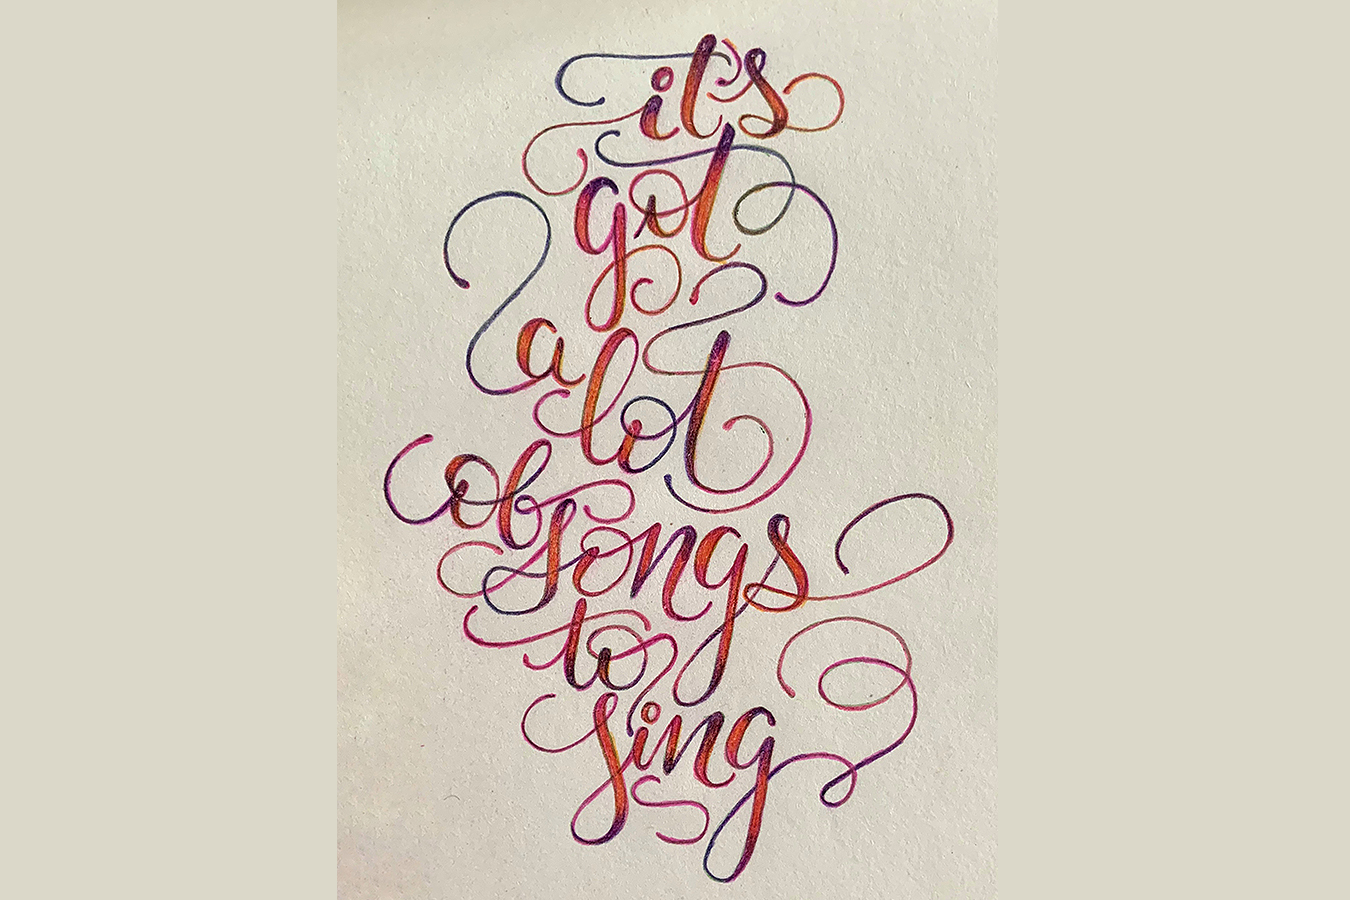 it's
got
a lot
of songs
to
sing